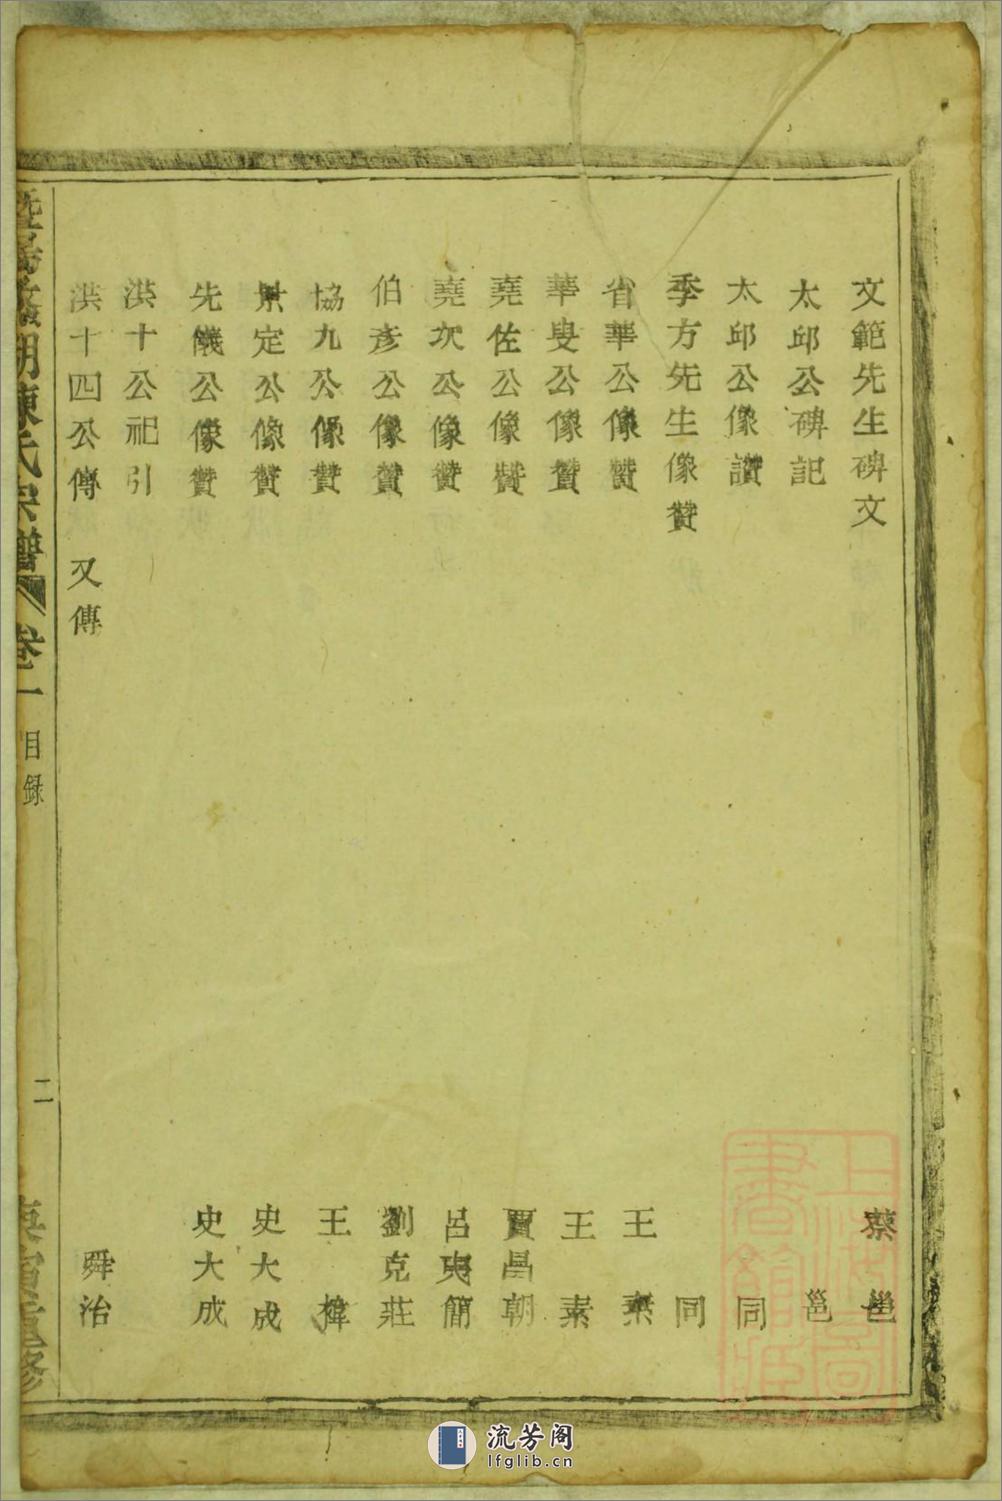 文範先生碑文 蔡邕
太邱公碑記 邕
太邱公像讚 同
季方先生像贊 同
省華公像贊 王素
華叟公像贊 王素
堯佐公像贊 賈昌朝
堯次公像贊 呂夷簡
伯彥公像贊 劉克莊
協九公像贊 王樟
景定公像贊 史大成
先儀公像贊 史大成
洪十公祀引
洪十四公傳 又傳 舜治
湖陳氏宗譜 卷一 目錄 二 庚寅重修
上海圖書館藏
流芳阁
lfglib.cn